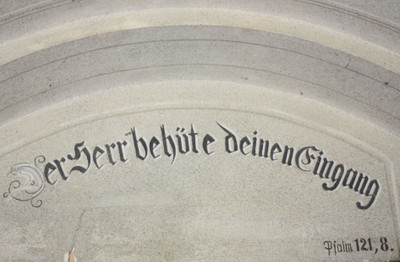 Der Herr behüte deinen Eingang
Psalm 121, 8.